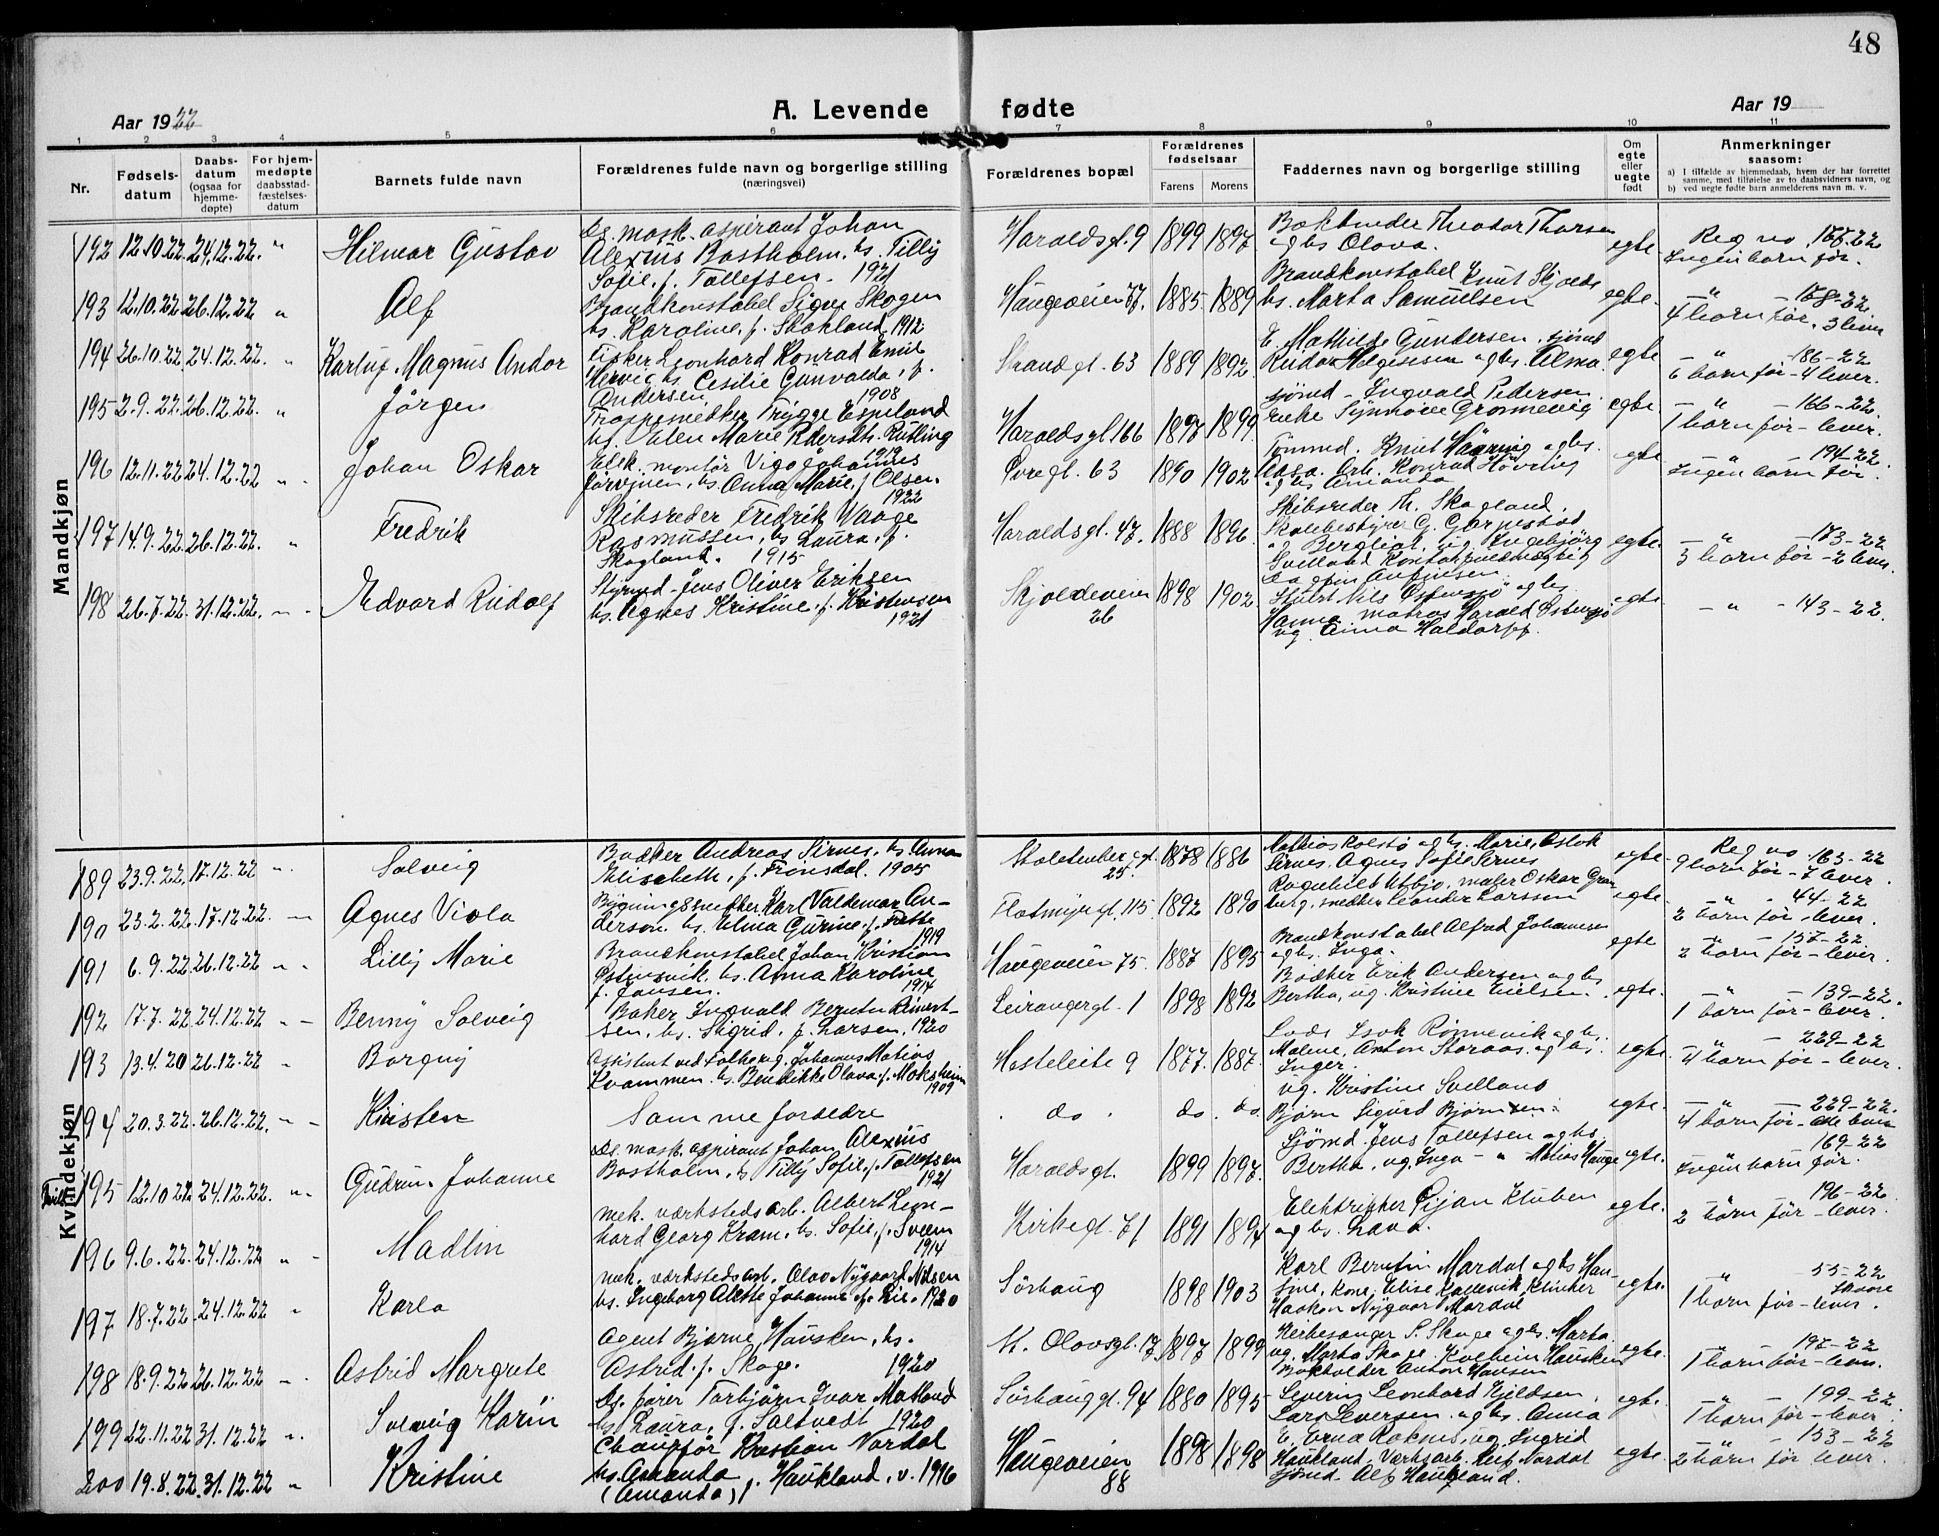 48
Aar 1922
A. Levende fødte
Aar 19
1 2 3 4 5 6 7 8 9 10 11
Nr.
Fødsels-
datum
Daabs-
datum
(ogsaa for
hjemme-
døpte)
For hjem-
medøpte
daabsstad-
fæstelses-
datum
Barnets fulde navn
Forældrenes fulde navn og borgerlige stilling
(næringsvei)
Forældrenes bopæl
Forældrenes
fødselsaar
Farens Morens
Faddernes navn og borgerlige stilling
Om
egte
eller
uegte
født
Anmerkninger
saasom:
a) I tilfælde av hjemmedaab, hvem der har forrettet
samme, med tilføielse av to daabsvidners navn, og
b) ved uegte fødte barn anmelderens navn m. v.
Mandkjøn
192 12.10.22. 24.12.22. " Hilmar Gustav
Ds. mask. aspirant Johan
Alexius Bostholm, hs. Tilly
Sofie, f. Tollefsen. 1921
Haraldsgt. 9 1899 1897
Bokbinder Theodor Thorsen
og hs Olava.
egte. Reg no 168-22
Ingen barn før.
193 12.10.22. 26.12.22 " Alf
Brandkonstabel Sigve Skogen
hs. Karoline, f. Stokland 1912
Haugeveien 77. 1885 1889
Brandkonstabel Knut
hs. Marta Samuelsen
egte. - " - 158-22.
4 barn før. 3 lever
194 26.10.22. 24.12.22. " Karluf Magnus Andor
Fisker Leonhard Konrad Emil
hs. Cecilie Gunvalda, f.
Andersen. 1908
Strandgt. 63 1889 1892
E. Mathilde Gundersen, sjömd
og hs Alma.
egte - " - 186-22
6 barn før - 4 lever.
195 2.9.22. 26.12.22. " Jörgen
Trygge Espeland
hs. Elen Marie Pedersdtr. Rutling
1919
Haraldsgt 166 1897 1899
sjömd - Ingvald Pedersen.
enke Synnöve Gronnevig
egte. - " - 166-22.
1 barn før - lever.
196 12.11.22 24.12.22 " Johan Oskar
Elek. montör Vigo Johannes
hs. Anna Marie, f Olsen.
1922
Övregt. 63 1890 1902
Tömmd. Knut og hs.
Arb. Konrad
og hs Amanda
egte - " - 194-22.
Ingen barn før.
197 14.9.22. 26.12.22. " Fredrik
Skibsreder Fredrik Waage
Rasmussen, hs Laura, f.
Skogland. 1915
Haraldsgt. 47. 1888 1896
Skibsreder Th. Skogland.
Skolebestyrer G. Garpestad
og Bergliot, ug. Ingebjörg
egte. - " - 173-22
3 barn før - 2 lever.
198 26.7.22. 31.12.22. " Edvard Rudolf
Styrmd. Jens Oliver Eriksen
hs. Agnes Kristine, f. Kristensen
1921
Skjoldeveien
26
1898 1902
Nils Østensjö og hs
Hanna, matros Harald Østensjö
ug. Anna
egte - " - 143-22.
Kvindekjøn
189 23.9.22. 17.12.22 " Solveig
Bødker Andreas Sirnes, hs Anna
Elisabeth, f. Fronsdal. 1905
25.
1878 1886
Mathios og hs. Marie, Aslak
Sirnes. Agnes Sofie Sirnes
egte. Reg no 163-22
9 barn før - 7 lever.
190 23.2.22. 17.12.22. " Agnes Viola
Karl Valdemar An-
derson hs. Alma Gurine, f. Frette
1919
Flotmyrgt. 115 1892 1890
maler Oskar
Leander Larssen
egte - " - 44-22
2 barn før - lever.
191 6.9.22. 26.12.22 " Lilly Marie
Brandkonstabel Johan Kristian
Østensvik. hs. Anna Karoline
f. Jansen. 1914
Haugeveien 75. 1887 1895
Brandkonstabel Alfred Johannesen
og hs. Inga.
egte - " - 157-22
2 barn før - lever.
192 17.7.22. 24.12.22 " Benny Solveig
Baker Ingvald Berntin Reinert-
sen, hs. Sigrid, f. Larsen. 1920
Leirangergt. 1 1898 1892
Bødker Erik Andersen og hs
Bertha, ug. Kristine Nielsen.
egte. - " - 139-22.
1 barn før - lever.
193 13.4.20 26.12.22 " Borgny
Assistent ved Johannes Matias
Kvammen. hs. Bendikke Olava, f. Moksheim
1909
Hesteleite 9 1877. 1887.
Lods Isak Rönnevik og hs.
Malene, Anton Storaas. og hs.
Inger.
egte. - " - 229-22
4 barn før - lever.
194 20.3.22. 26.12.22. " Kristen
Samme foreldre
do do. do.
ug. Kristine Svelland
Bjørn Sigurd Bjørnsen.
egte. - " - 229-22.
4 barn før - alle lever
Tvill. 195 12.10.22. 24.12.22. " Gudrun Johanne
Ds. mask. aspirant Johan Alexius
Bostholm, hs Tilly Sofie, f. Tollefsen
1921
Haraldsgt. 1899 1897.
Sjömd. Jens Tollefsen og hs
Bertha, ug. Inga - " Matios Hauge
egte. 169-22
Ingen barn før.
196 9.6.22. 24.12.22 " Madlin
Mek. værkstedsarb. Albert Leon-
hard Georg Kram, hs. Sofie, f. Sveen
1914
Kirkegt. 71 1891 1894
Elektriker
og hs.
egte. 196-22
2 barn før - lever.
197 18.7.22. 24.12.22 " Karla
Mek. værkstedsarb. Olav Nygaard Nilsen
hs. Ingeborg Alette Johanne, f. Lie. 1920
Sörhaug 1898 1903
Karl Berntin Mardal og hs Han-
sine, kone, Elise
Haakon Nygaard Mardal
egte. - " - 55-22
Skaare
1 barn før - lever.
198 18.9.22 26.12.22 " Astrid Margrete
Agent Bjarne Hausken, hs.
Astrid, f. Skage. 1920
St. Olavsgt. 17. 1897 1899
Kirkesanger S. Skage og hs. Marta.
ug. Marta Skage. Hausken
Bokholder Anton Hausen
egte. - " - 197-22
1 barn før - lever.
199 22.11.22 31.12.22 " Solveig Karin
Torbjørn Ivar Matland
hs. Laura, f. Saltvedt 1920
Sörhauggt. 94 1880 1895
Severin Leonhard Kjeldsen
Lars Seversen og hs. Anna
egte. - " - 199-22.
1 barn før - lever.
200 19.8.22. 31.12.22 " Kristine
Chauffør Kristian Nordal
hs. Amanda f. Haukland. v. 1916
(Amanda)
Haugeveien
88
1898 1898
E. Erna ug. Ingrid
Haukland. Værksarb. Nordal
Sjömd. Alf Haukland.
egte. - " - 153-22
2 barn før lever.